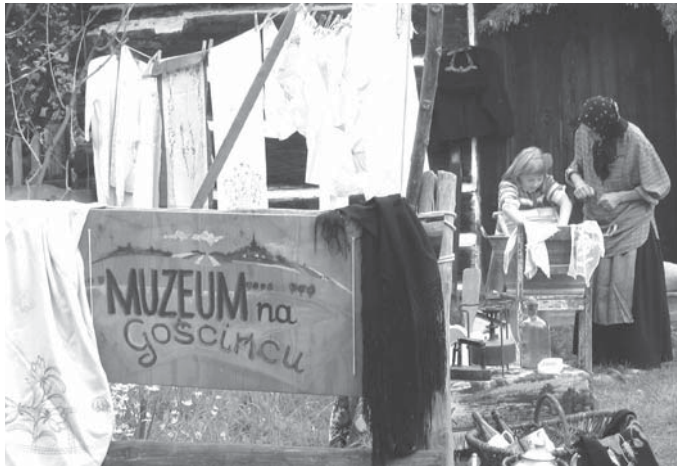 MUZEUM na
Gościńcu